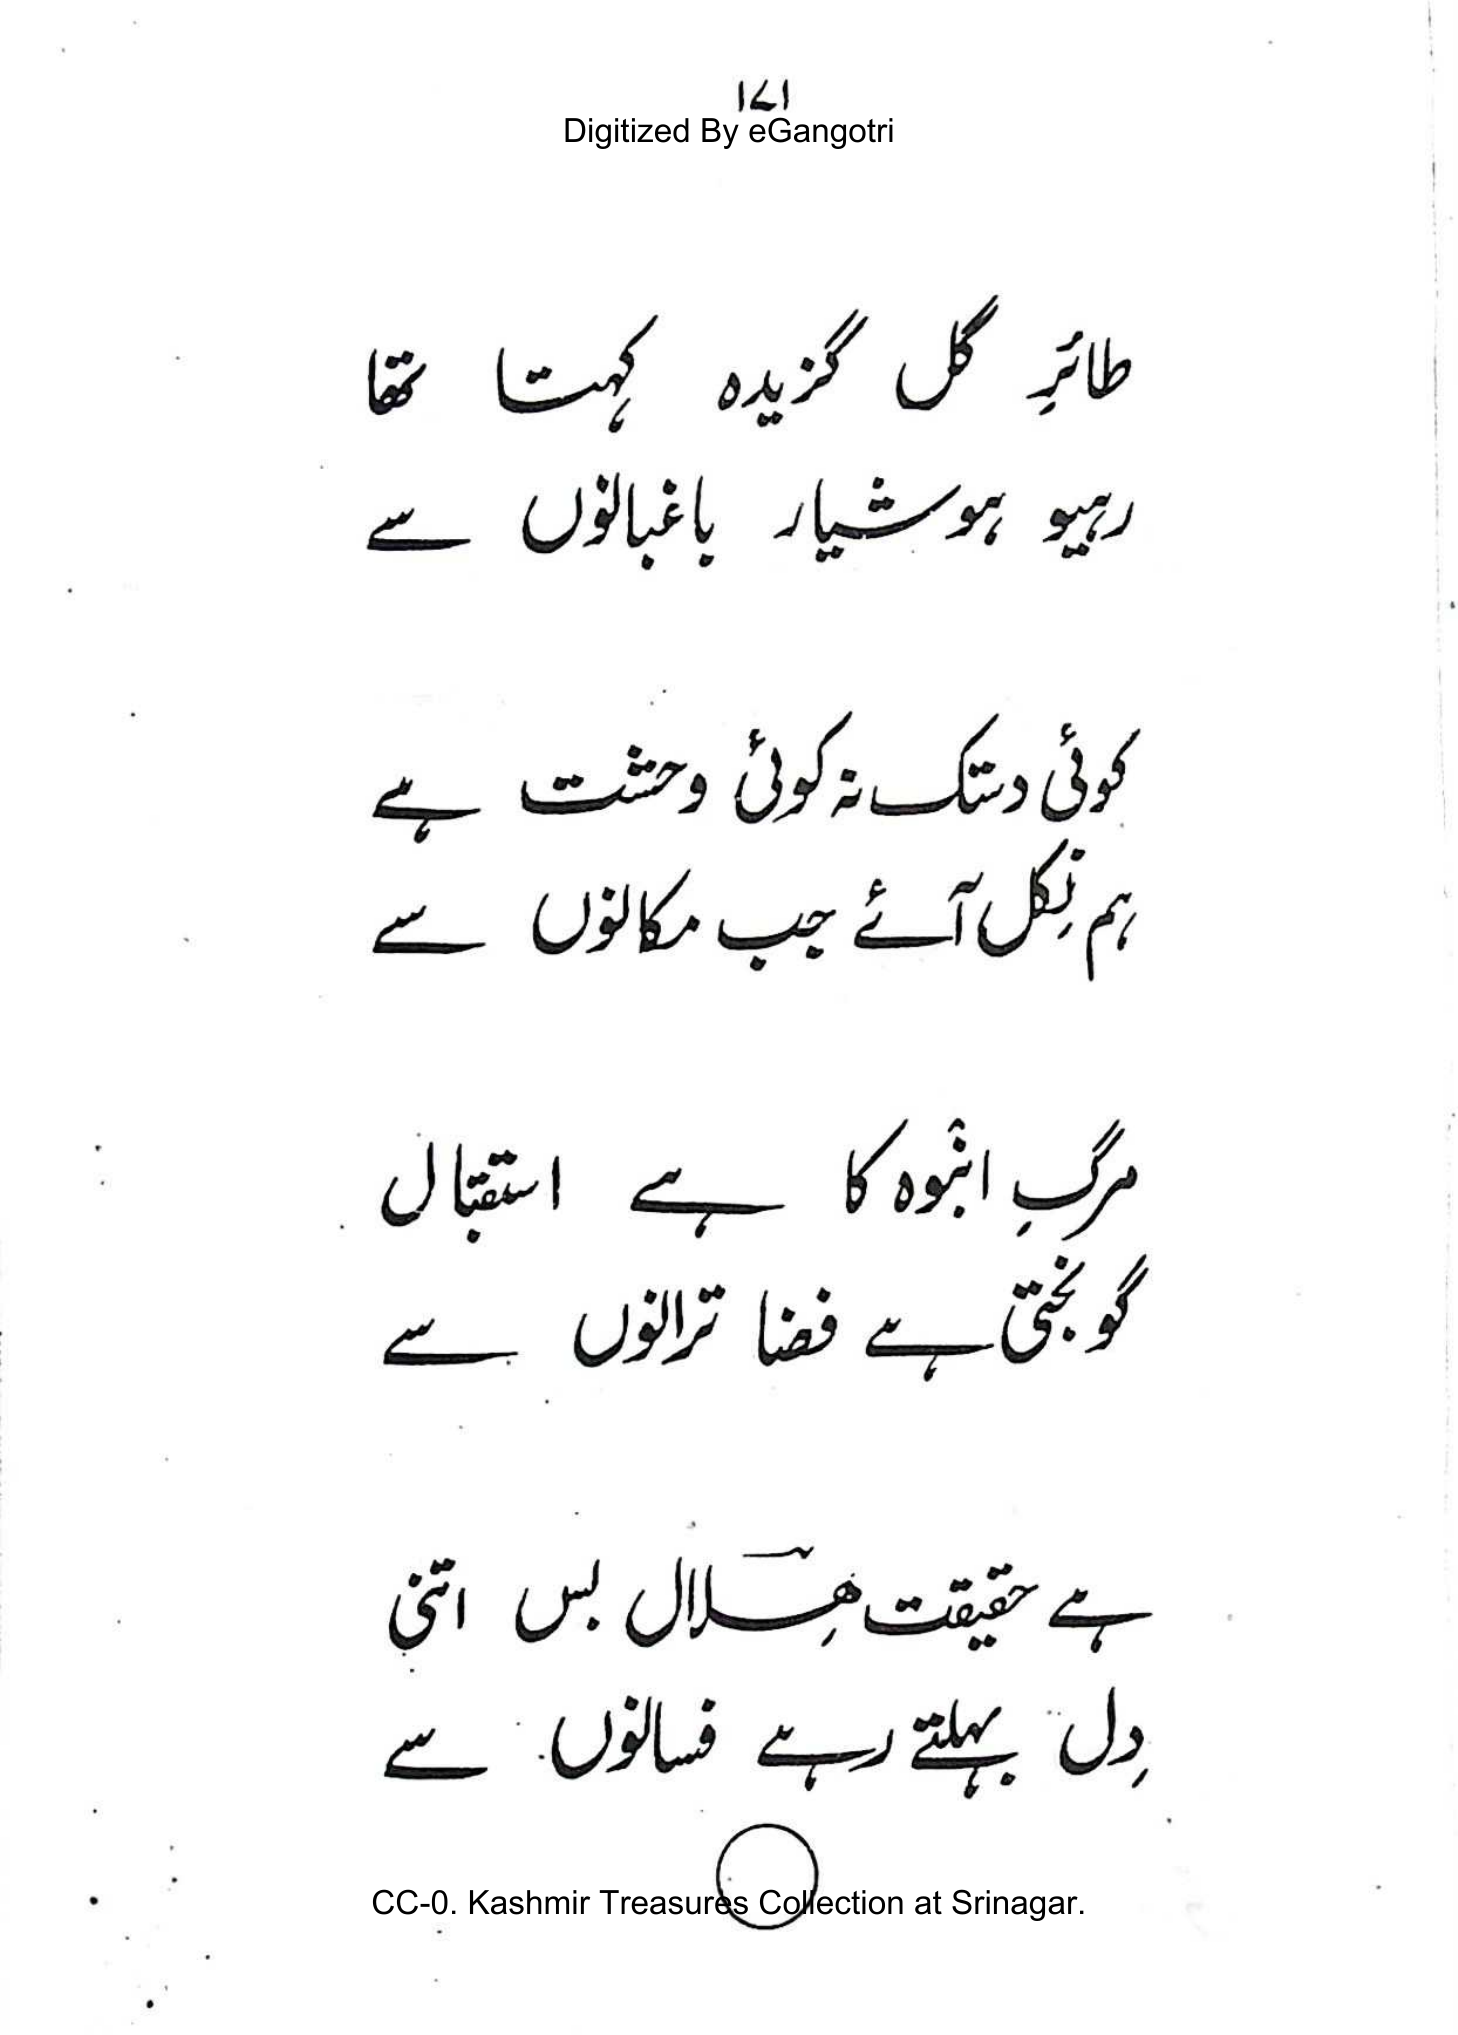 ۱۷۱
Digitized By eGangotri
طائرِ گل گزیدہ کہتا تھا
رہیو ہوشیار باغبانوں سے
کوئی دستک نہ کوئی وحشت ہے
ہم نِکل آئے جب مکانوں سے
مرگِ انبوہ کا ہے استقبال
گونجتی ہے فضا ترانوں سے
ہے حقیقت ھِلال بس اتنی
دِل بہلتے رہے فسانوں سے
CC-0. Kashmir Treasures Collection at Srinagar.